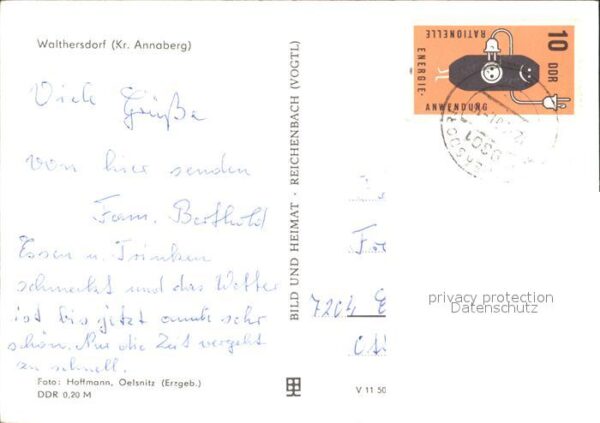 Walthersdorf (Kr. Annaberg)
Viele Grüße
von hier senden
Fam. Berthold
Essen u. Trinken
schmeckt und das Wetter
ist bis jetzt auch sehr
schön. Nur die Zeit vergeht
zu schnell.
Foto: Hoffmann, Oelsnitz (Erzgeb.)
DDR 0,20 M
BILD UND HEIMAT · REICHENBACH (VOGTL)
V 11 50
10 DDR
RATIONELLE
ENERGIE-
ANWENDUNG
9301
7204
privacy protection
Datenschutz